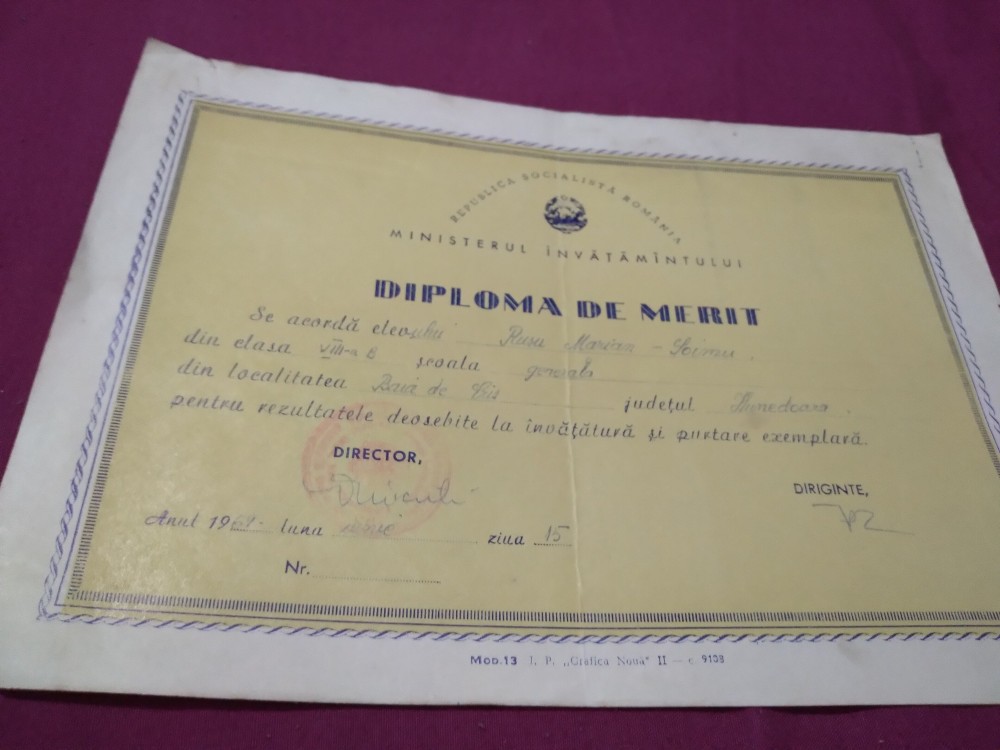 REPUBLICA SOCIALISTA ROMÂNIA
MINISTERUL ÎNVĂTĂMÎNTULUI
DIPLOMA DE MERIT
Se acordă elevului Rusu Marian - Soimu
din clasa VIII-a B școala generală
din localitatea Baia de Criș județul Hunedoara.
pentru rezultatele deosebite la învățătură și purtare exemplară.
DIRECTOR,
DIRIGINTE,
Anul 1969 luna iunie ziua 15
Nr.
Mod.13 I. P. „Grafica Nouă" II — c. 9108